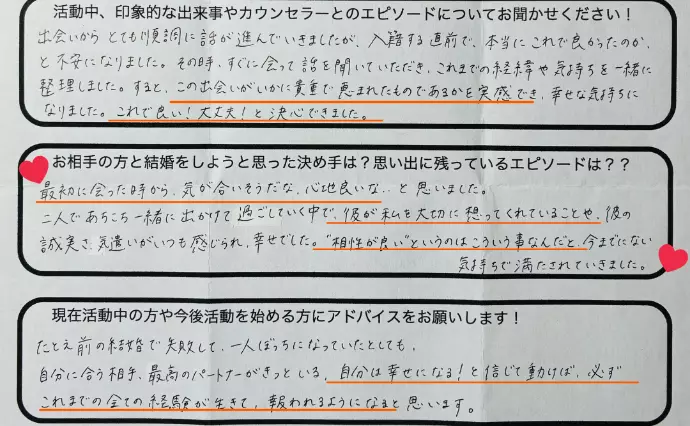 活動中、印象的な出来事やカウンセラーとのエピソードについてお聞かせください！
出会いから とても順調に話が進んでいきましたが、入籍する直前で、本当にこれで良かったのか、
と不安になりました。その時、すぐに会って話を聞いていただき、これまでの経緯や気持ちを一緒に
整理しました。すると、この出会いがいかに貴重で恵まれたものであるかを実感でき、幸せな気持ちに
なりました。これで良い！大丈夫！と決心できました。
お相手の方と結婚をしようと思った決め手は？思い出に残っているエピソードは？？
最初に会った時から、気が合いそうだな、心地良いな、と思いました。
二人であちこち一緒に出かけて過ごしていく中で、彼が私を大切に想ってくれていることや、彼の
誠実さ、気遣いがいつも感じられ、幸せでした。"相性が良い"というのはこういう事なんだと、今までにない
気持ちで満たされていきました。
現在活動中の方や今後活動を始める方にアドバイスをお願いします！
たとえ前の結婚で失敗して、一人ぼっちになっていたとしても、
自分に合う相手、最高のパートナーがきっといる、自分は幸せになる！と信じて動けば、必ず
これまでの全ての経験が生きて、報われるようになると思います。